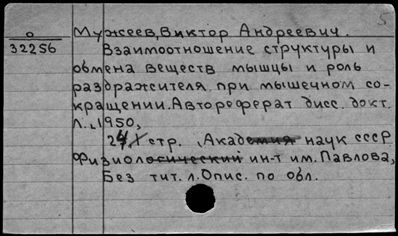 5
О
32256
Мужеев, Виктор Андреевич.
Взаимоотношение структуры и
обмена веществ мышцы и роль
раздражителя при мышечном со-
кращении. Автореферат дисс. докт.
Л., 1950,
стр. Академия наук СССР
Физиологический ин-т им. Павлова,
Без тит. л. Опис. по обл.